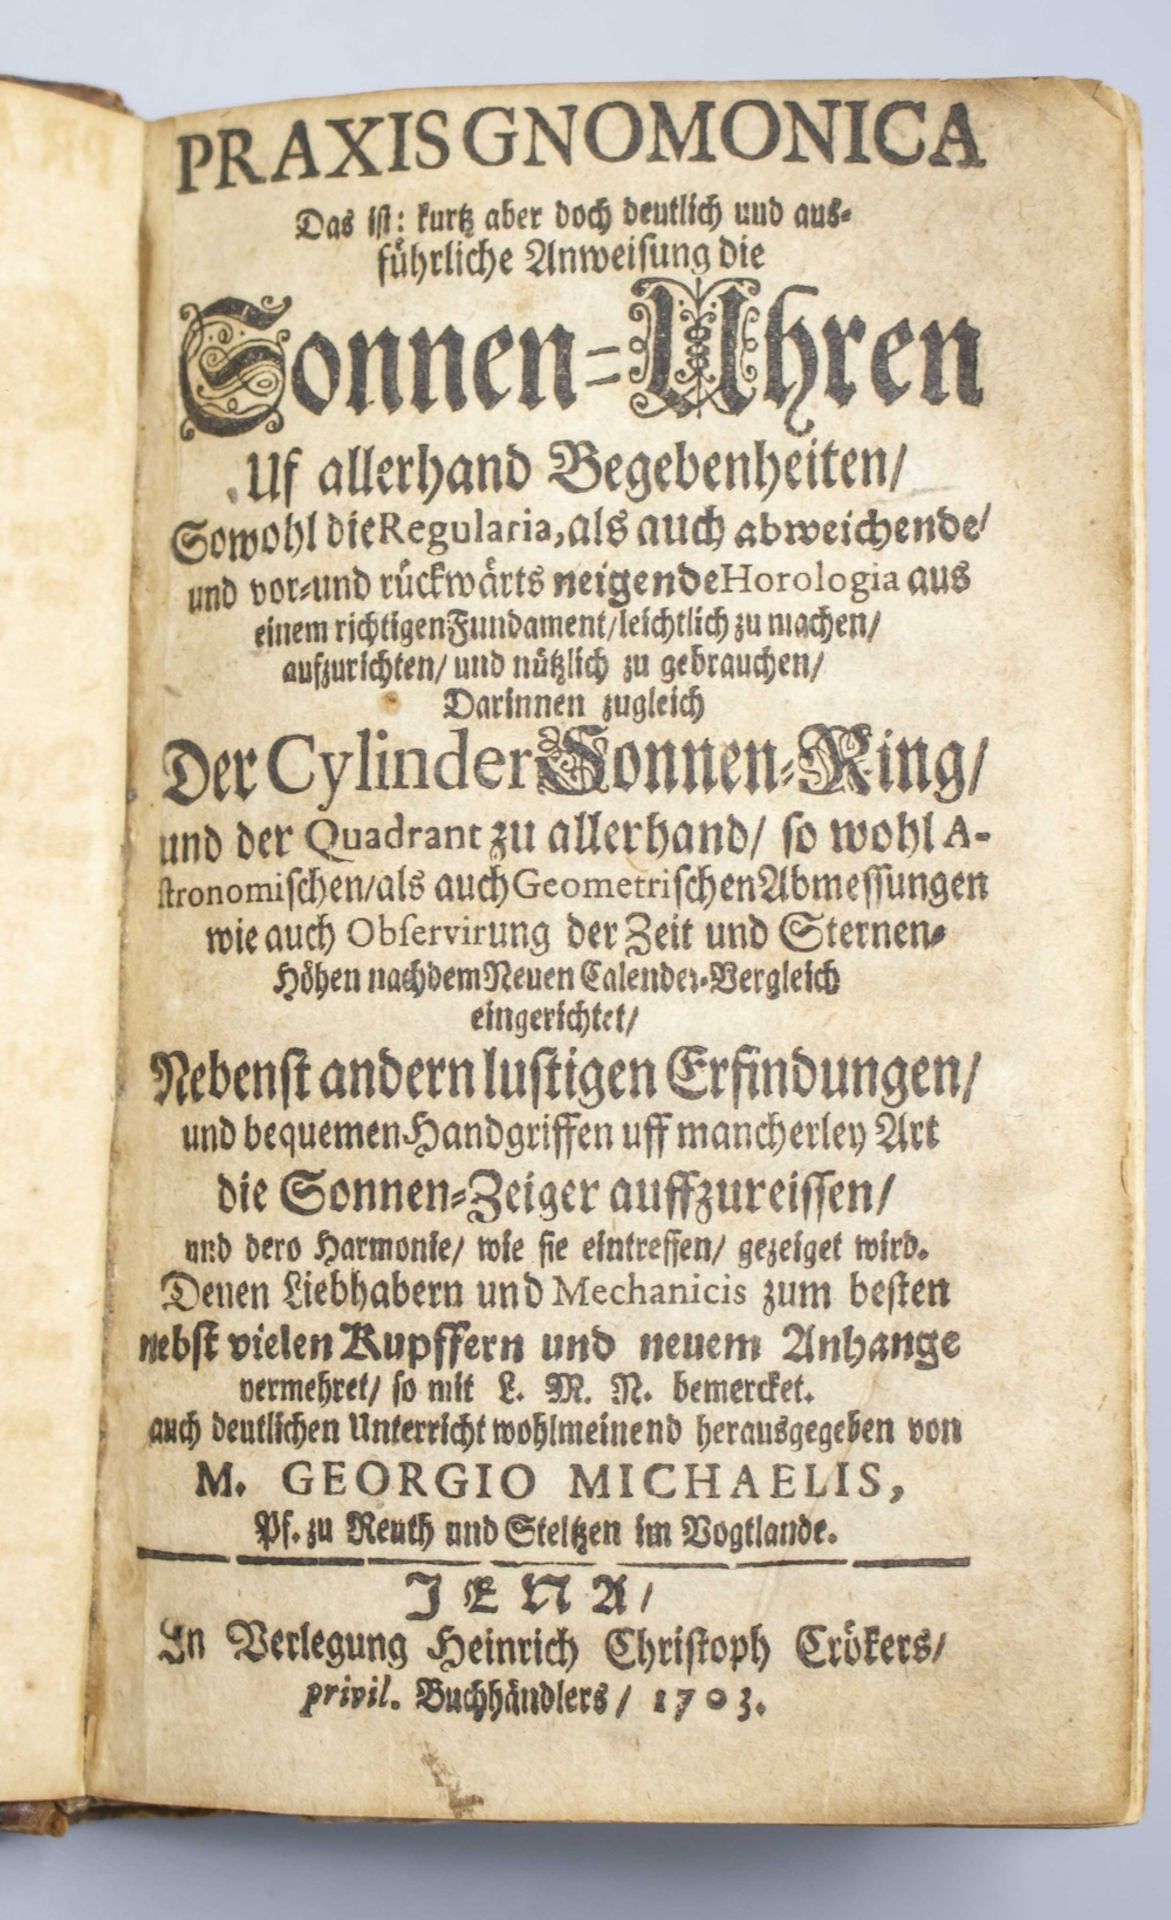 PRAXIS GNOMONICA
Das ist: kurtz aber doch deutlich und aus-
führliche Anweisung die
Sonnen-Uhren
Uf allerhand Begebenheiten/
Sowohl die Regularia, als auch abweichende/
und vor-und rückwärts neigende Horologia aus
einem richtigen Fundament/leichtlich zu machen/
aufzurichten/ und nützlich zu gebrauchen/
Darinnen zugleich
Der Cylinder Sonnen-Ring/
und der Quadrant zu allerhand/ so wohl A-
stronomischen/als auch Geometrischen Abmessungen
wie auch Observirung der Zeit und Sternen-
Höhen nach dem Neuen Calender-Vergleich
eingerichtet/
Nebenst andern lustigen Erfindungen/
und bequemen Handgriffen uff mancherley Art
die Sonnen-Zeiger auffzureissen/
und dero Harmonie/ wie sie eintreffen/ gezeiget wird.
Denen Liebhabern und Mechanicis zum besten
nebst vielen Kupffern und neuem Anhange
vermehret/ so mit L. M. N. bemercket.
auch deutlichen Unterricht wohlmeinend herausgegeben von
M. GEORGIO MICHAELIS,
Pf. zu Reuth und Steltzen im Vogtlande.
JENA/
In Verlegung Heinrich Christoph Crökers/
privil. Buchhändlers/ 1703.